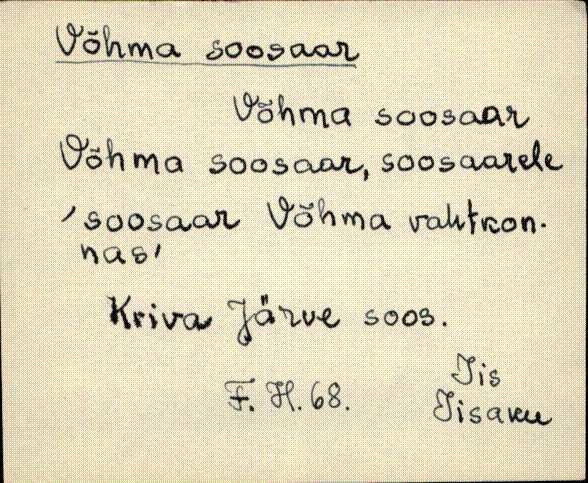 Võhma soosaar
Võhma soosaar
Võhma soosaar, soosaarele
'soosaar Võhma vahtkon-
nas'
Kriva Järve soos.
Iis
F. H. 68.
Iisaku